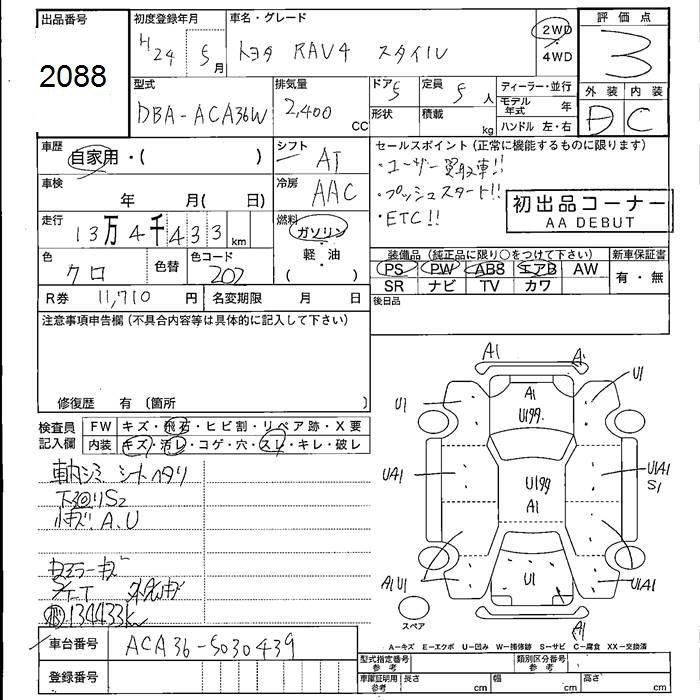 出品番号
2088
初度登録年月
H24 5月
車名・グレード
トヨタ RAV4 スタイル
2WD
4WD
評価点
3
外装 内装
D C
型式
DBA-ACA36W
排気量
2,400
CC
ドア 5
形状
定員 5人
積載 kg
ディーラー・並行
モデル年式 年
ハンドル 左・右
車歴
自家用・( )
車検
年 月( 日)
走行
13万4千433km
色
クロ
色替
色コード
202
R券 11,710 円
名変期限 月 日
シフト
AT
冷房
AAC
燃料
ガソリン
軽・油
( )
セールスポイント(正常に機能するものに限ります)
・ユーザー買取車!!
・プッシュスタート!!
・ETC!!
初出品コーナー
AA DEBUT
装備品(純正品に限り○をつけて下さい)
PS PW ABS エアB AW
SR ナビ TV カワ
新車保証書
有・無
後日品
注意事項申告欄(不具合内容等は具体的に記入して下さい)
修復歴 有 〔箇所 〕
検査員
記入欄
FW キズ・飛石・ヒビ割・リペア跡・X要
内装 キズ・汚レ・コゲ・穴・スレ・キレ・破レ
車内シミ シートヘタリ
下回りS2
小キズ A.U
134433km
車台番号
ACA36-5030439
登録番号
A1
A
A1
U199.
U1
U1
UA1
U1A1
S1
U199
A1
A1U1
U1A1
U1
A1
スペア
A－キズ E－エクボ U－凹み W－補修跡 S－サビ C－腐食 XX－交換済
型式指定番号
参考
類別区分番号
参考
車庫証明用
参考
長さ cm
幅 cm
高さ cm